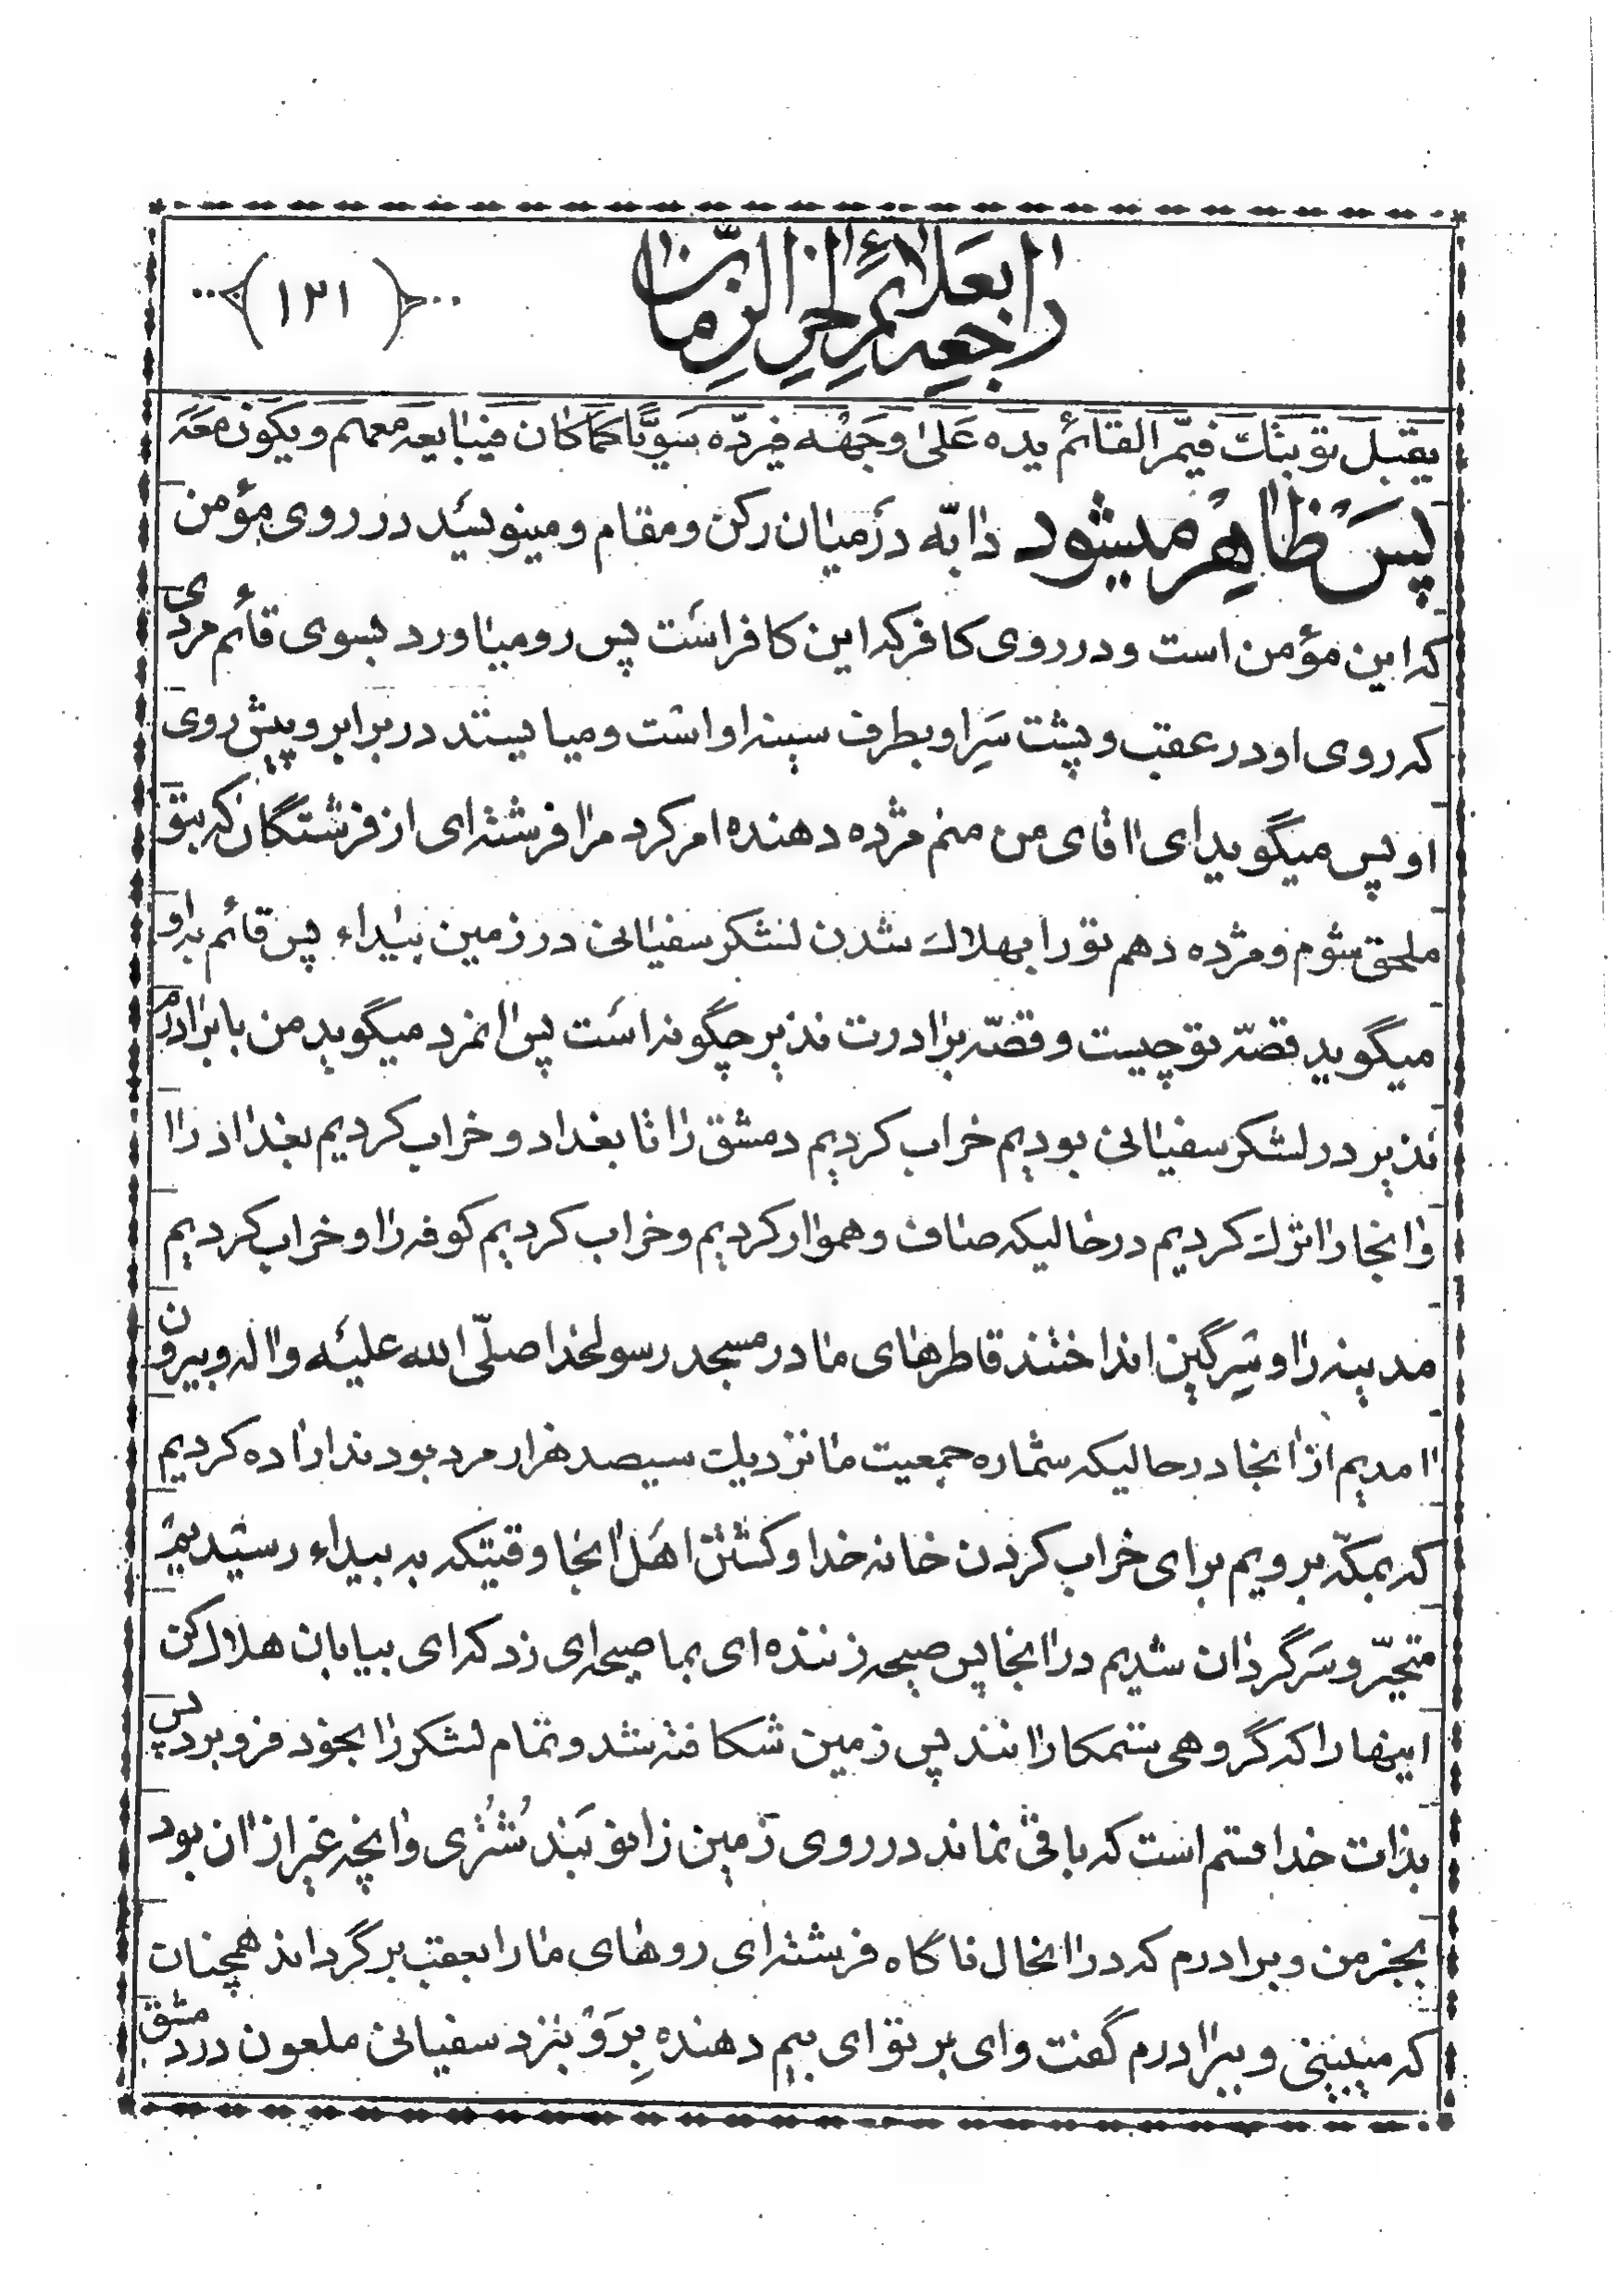 راجعه بعلائم اخر الزمان
(۱۲۱)
یقبل توبتك فیمّر القائم یده علیٰ وجهه فیردّه سویّا کما کان فیبایعه معهم ویکون معه
پس ظاهر میشود دابّه در میان رکن و مقام و مینویسد در روی مؤمن
که این مؤمن است و در روی کافر که این کافر است پس رو میاورد بسوی قائم مردی
که روی او در عقب و پشت سر او بطرف سینه او است و میایستد در برابر و پیش روی
او پس میگوید ای اقای من منم مژده دهنده امر کرد مرا فرشته ای از فرشتگان که بتو
ملحق شوم و مژده دهم تو را بهلاك شدن لشکر سفیانی در زمین بیداء پس قائم به او
میگوید قصّه تو چیست و قصّه برادرت نذیر چگونه است پس انمرد میگوید من با برادرم
نذیر در لشکر سفیانی بودیم خراب کردیم دمشق را تا بغداد و خراب کردیم بغداد را
و انجا را ترك کردیم در حالیکه صاف و هموار کردیم و خراب کردیم کوفه را و خراب کردیم
مدینه را و سرگین انداختند قاطرهای ما در مسجد رسولخدا صلّی الله علیه و اله و بیرون
امدیم از انجا در حالیکه شماره جمعیت ما نزدیك سیصد هزار مرد بودند اراده کردیم
که بمکّه برویم برای خراب کردن خانه خدا و کشتن اهل انجا وقتیکه به بیداء رسیدیم
متحیّر و سرگردان شدیم در انجا پس صیحه زننده ای بما صیحه ای زد که ای بیابان هلاك کن
اینها را که گروهی ستمکارانند پس زمین شکافته شد و تمام لشکر را بخود فرو برد پس
بذات خدا قسم است که باقی نماند در روی زمین زانو بند شتری و انچه غیر از ان بود
بجز من و برادرم که در انحال ناگاه فرشته ای روهای ما را بعقب برگرداند همچنان
که میبینی و ببرادرم گفت وای بر تو ای بیم دهنده برو بنزد سفیانی ملعون در دمشق